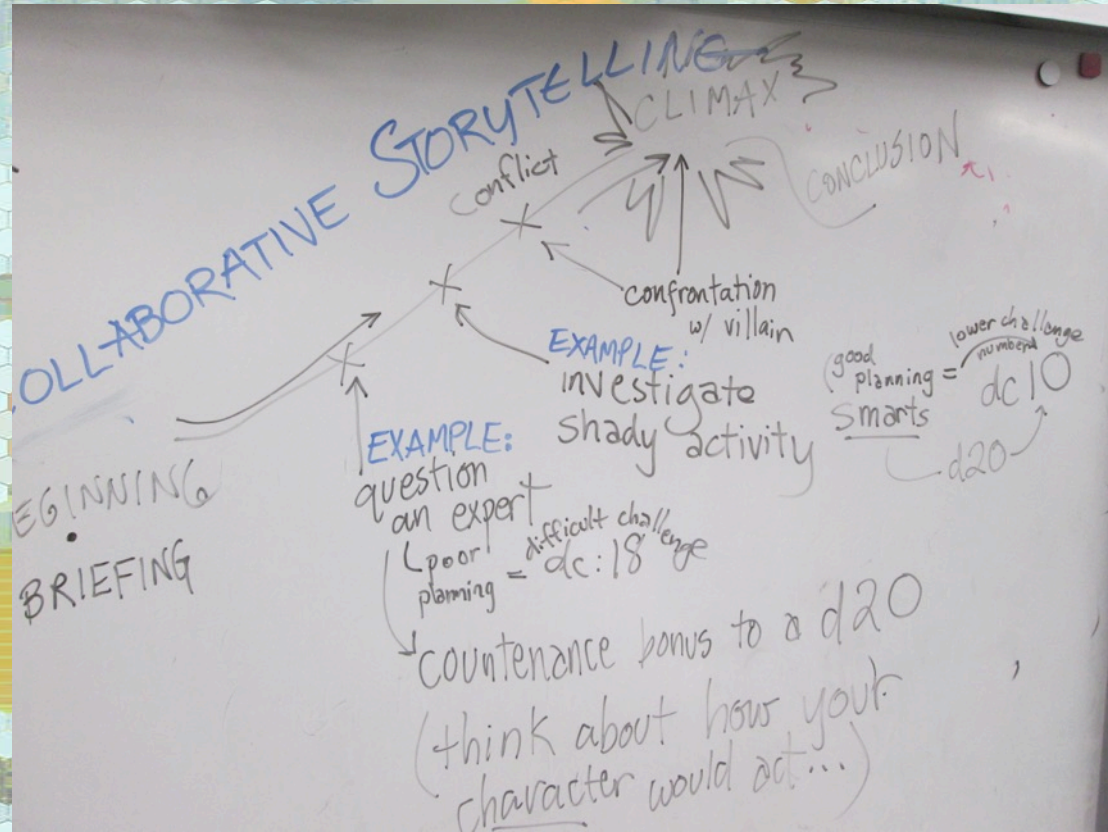 OLLABORATIVE STORYTELLING
CLIMAX
CONCLUSION
Conflict
confrontation
w/ villain
EXAMPLE:
investigate
shady activity
(good
planning =
smarts
lower challenge
number)
dc 10
d20
EXAMPLE:
question
an expert
(poor
planning =
difficult challenge
dc: 18
EGINNING
BRIEFING
countenance bonus to a d20
(think about how your
character would act...)